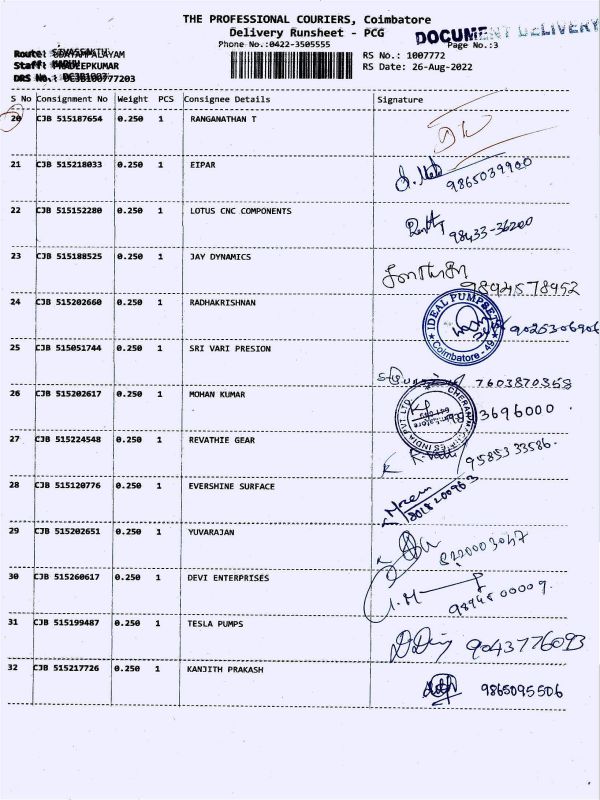 THE PROFESSIONAL COURIERS, Coimbatore
Delivery Runsheet - PCG
DOCUMENT DELIVERY
Phone No.:0422-3505555
Page No.:3
Route:
RS No.: 1007772
Staff:
RS Date: 26-Aug-2022
DRS No.:
S No Consignment No Weight PCS Consignee Details Signature
20 CJB 515187654 0.250 1 RANGANATHAN T
21 CJB 515218033 0.250 1 EIPAR
9865039900
22 CJB 515152280 0.250 1 LOTUS CNC COMPONENTS
98433-36200
23 CJB 515188525 0.250 1 JAY DYNAMICS
9894578952
24 CJB 515202660 0.250 1 RADHAKRISHNAN
IDEAL PUMPSETS
Coimbatore - 49
9025306906
25 CJB 515051744 0.250 1 SRI VARI PRESION
7603870358
26 CJB 515202617 0.250 1 MOHAN KUMAR
3696000
27 CJB 515224548 0.250 1 REVATHIE GEAR
9585333586.
28 CJB 515120776 0.250 1 EVERSHINE SURFACE
8018200963
29 CJB 515202651 0.250 1 YUVARAJAN
8220003047
30 CJB 515260617 0.250 1 DEVI ENTERPRISES
31 CJB 515199487 0.250 1 TESLA PUMPS
9043776093
32 CJB 515217726 0.250 1 KANJITH PRAKASH
9865095506